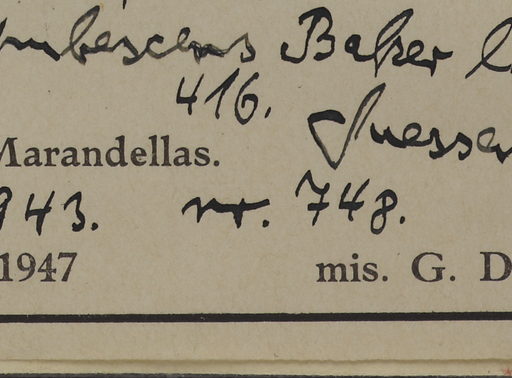 pubescens Baker
416.
Suessen
Marandellas.
943. nr. 748.
1947 mis. G. D